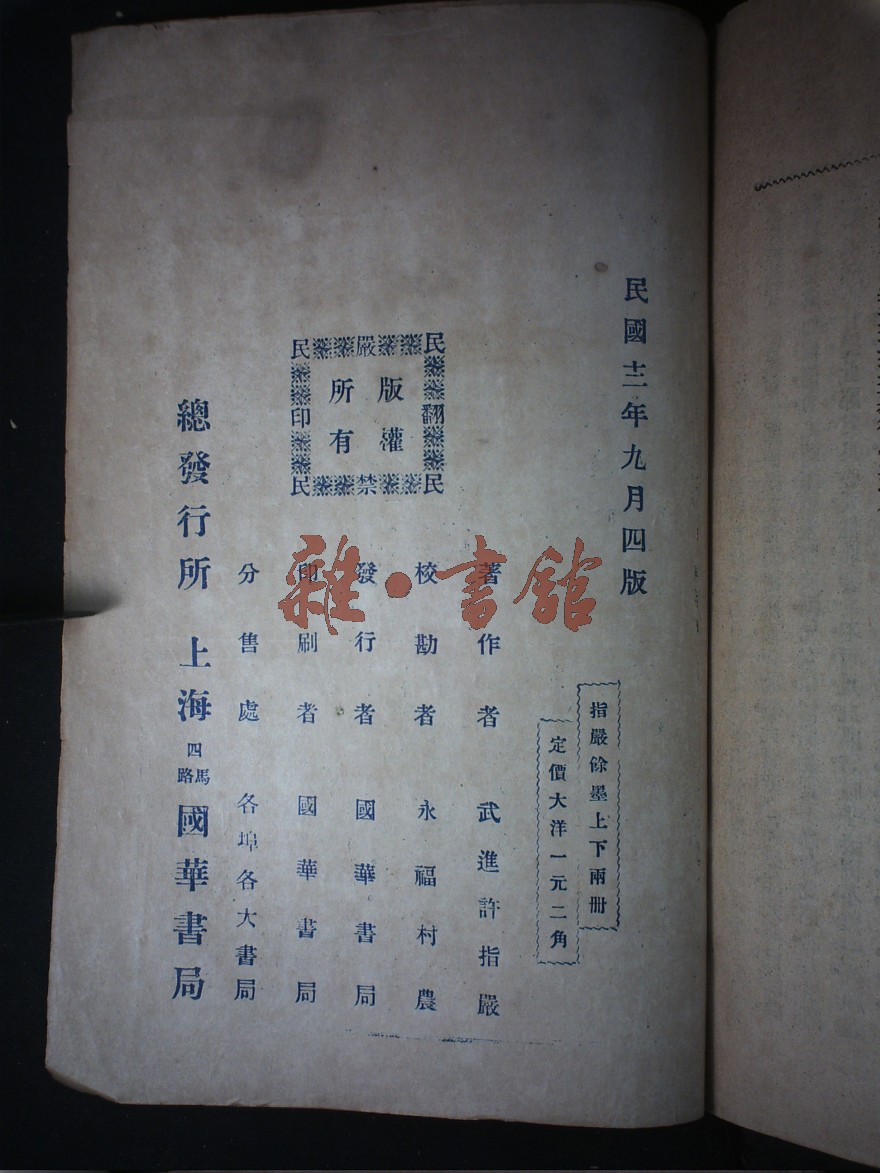 民國十二年九月四版
指嚴餘墨上下兩冊
定價大洋一元二角
著作者 武進許指嚴
校勘者 永福村農
發行者 國華書局
印刷者 國華書局
分售處 各埠各大書局
總發行所 上海四馬路 國華書局
版灌
所有
嚴禁
翻印
民 民
民 民
雜·書館